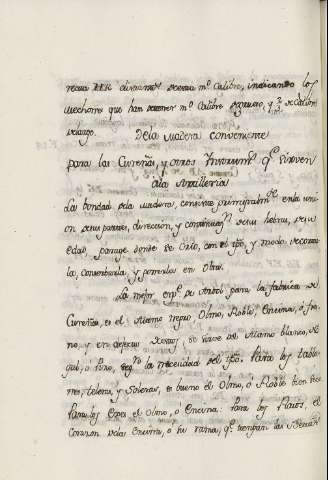 diametros de su mº Calibre, indicando los
mechones que han de tener mº Calibre de grueso, y 2/3 de Calibre
de largo. De la Madera conveniente
para las Cureñas, y otros Ynstrumtos qe sirven
a la Artilleria
La bondad de la madera, consiste principalmte en la union
de sus partes, direccion, y continuacn de sus hebras, su
edad, parage donde se crio, con el tpo, y modo de cortar
la, conservarla, y ponerla en obra.
La mejor espe de Arbol para la fabrica de
Cureñas, es el Alamo negro, Olmo, Roble, Encina, ó fres
no, y en defecto de estos, se sirve del Alamo blanco,
ó Pino, segn la necesidad del tpo. Para los tablo
nes, teleras, y Soleras, es bueno el Olmo, o Roble bien seco
Para los Exes el Olmo, o Encina: Para los Rayos, el
Corazon de la Encina, ó su rama, qe tengan las